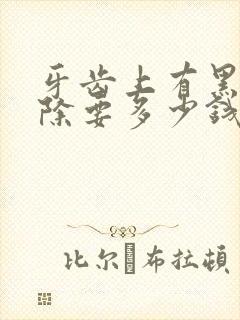 牙齿上有黑
除要多少钱
比尔·布拉顿